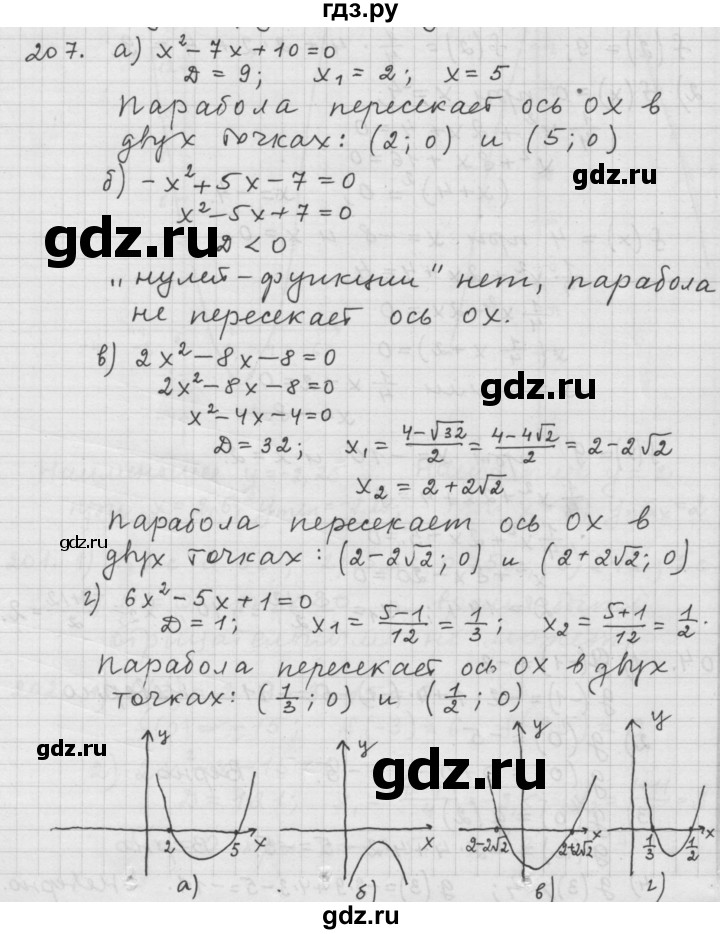 гдз.ру
207. а) x² - 7x + 10 = 0
D = 9; x₁ = 2; x = 5
Парабола пересекает ось OX в
двух точках: (2; 0) и (5; 0)
gdz.ru
б) - x² + 5x - 7 = 0
x² - 5x + 7 = 0
gdz.ru
D < 0
„нулей - функции" нет, парабола
не пересекает ось OX.
в) 2x² - 8x - 8 = 0
2x² - 8x - 8 = 0
gdz.ru
x² - 4x - 4 = 0
D = 32; x₁ = (4 - √32)/2 = (4 - 4√2)/2 = 2 - 2√2
x₂ = 2 + 2√2
Парабола пересекает ось OX в
gdz.ru
двух точках: (2 - 2√2; 0) и (2 + 2√2; 0)
г) 6x² - 5x + 1 = 0
D = 1; x₁ = (5 - 1)/12 = 1/3; x₂ = (5 + 1)/12 = 1/2.
Парабола пересекает ось OX в двух
точках: (1/3; 0) и (1/2; 0)
gdz.ru
gdz.ru
y y y y
2 5 x x 2-2√2 2+2√2 x 1/3 1/2 x
а) б) в) г)
gdz.ru